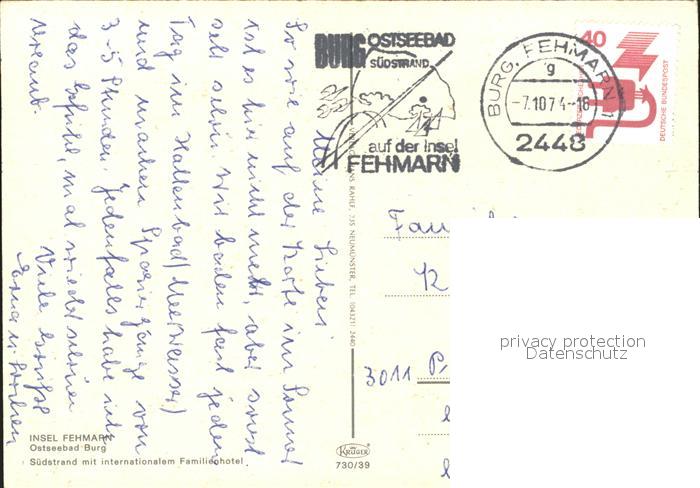 BURG OSTSEEBAD
SÜDSTRAND
auf der Insel
FEHMARN
BURG, FEHMARN 1
g
-7.10.74-18
2448
40
DEUTSCHE BUNDESPOST
Meine Lieben!
So wie auf der Karte im Sommer
ist es hier nicht mehr, aber sonst
sehr schön. Wir baden fast jeden
Tag im Hallenbad (Meerwasser)
und machen Spaziergänge von
3-5 Stunden. Jedenfalls habe ich
das Gefühl, mal wieder
Urlaub.
Viele Grüße
HANS RAHLF, 235 NEUMÜNSTER, TEL. (04321) 2440
12
3011
privacy protection
Datenschutz
INSEL FEHMARN
Ostseebad Burg
Südstrand mit internationalem Familienhotel
KRÜGER
730/39